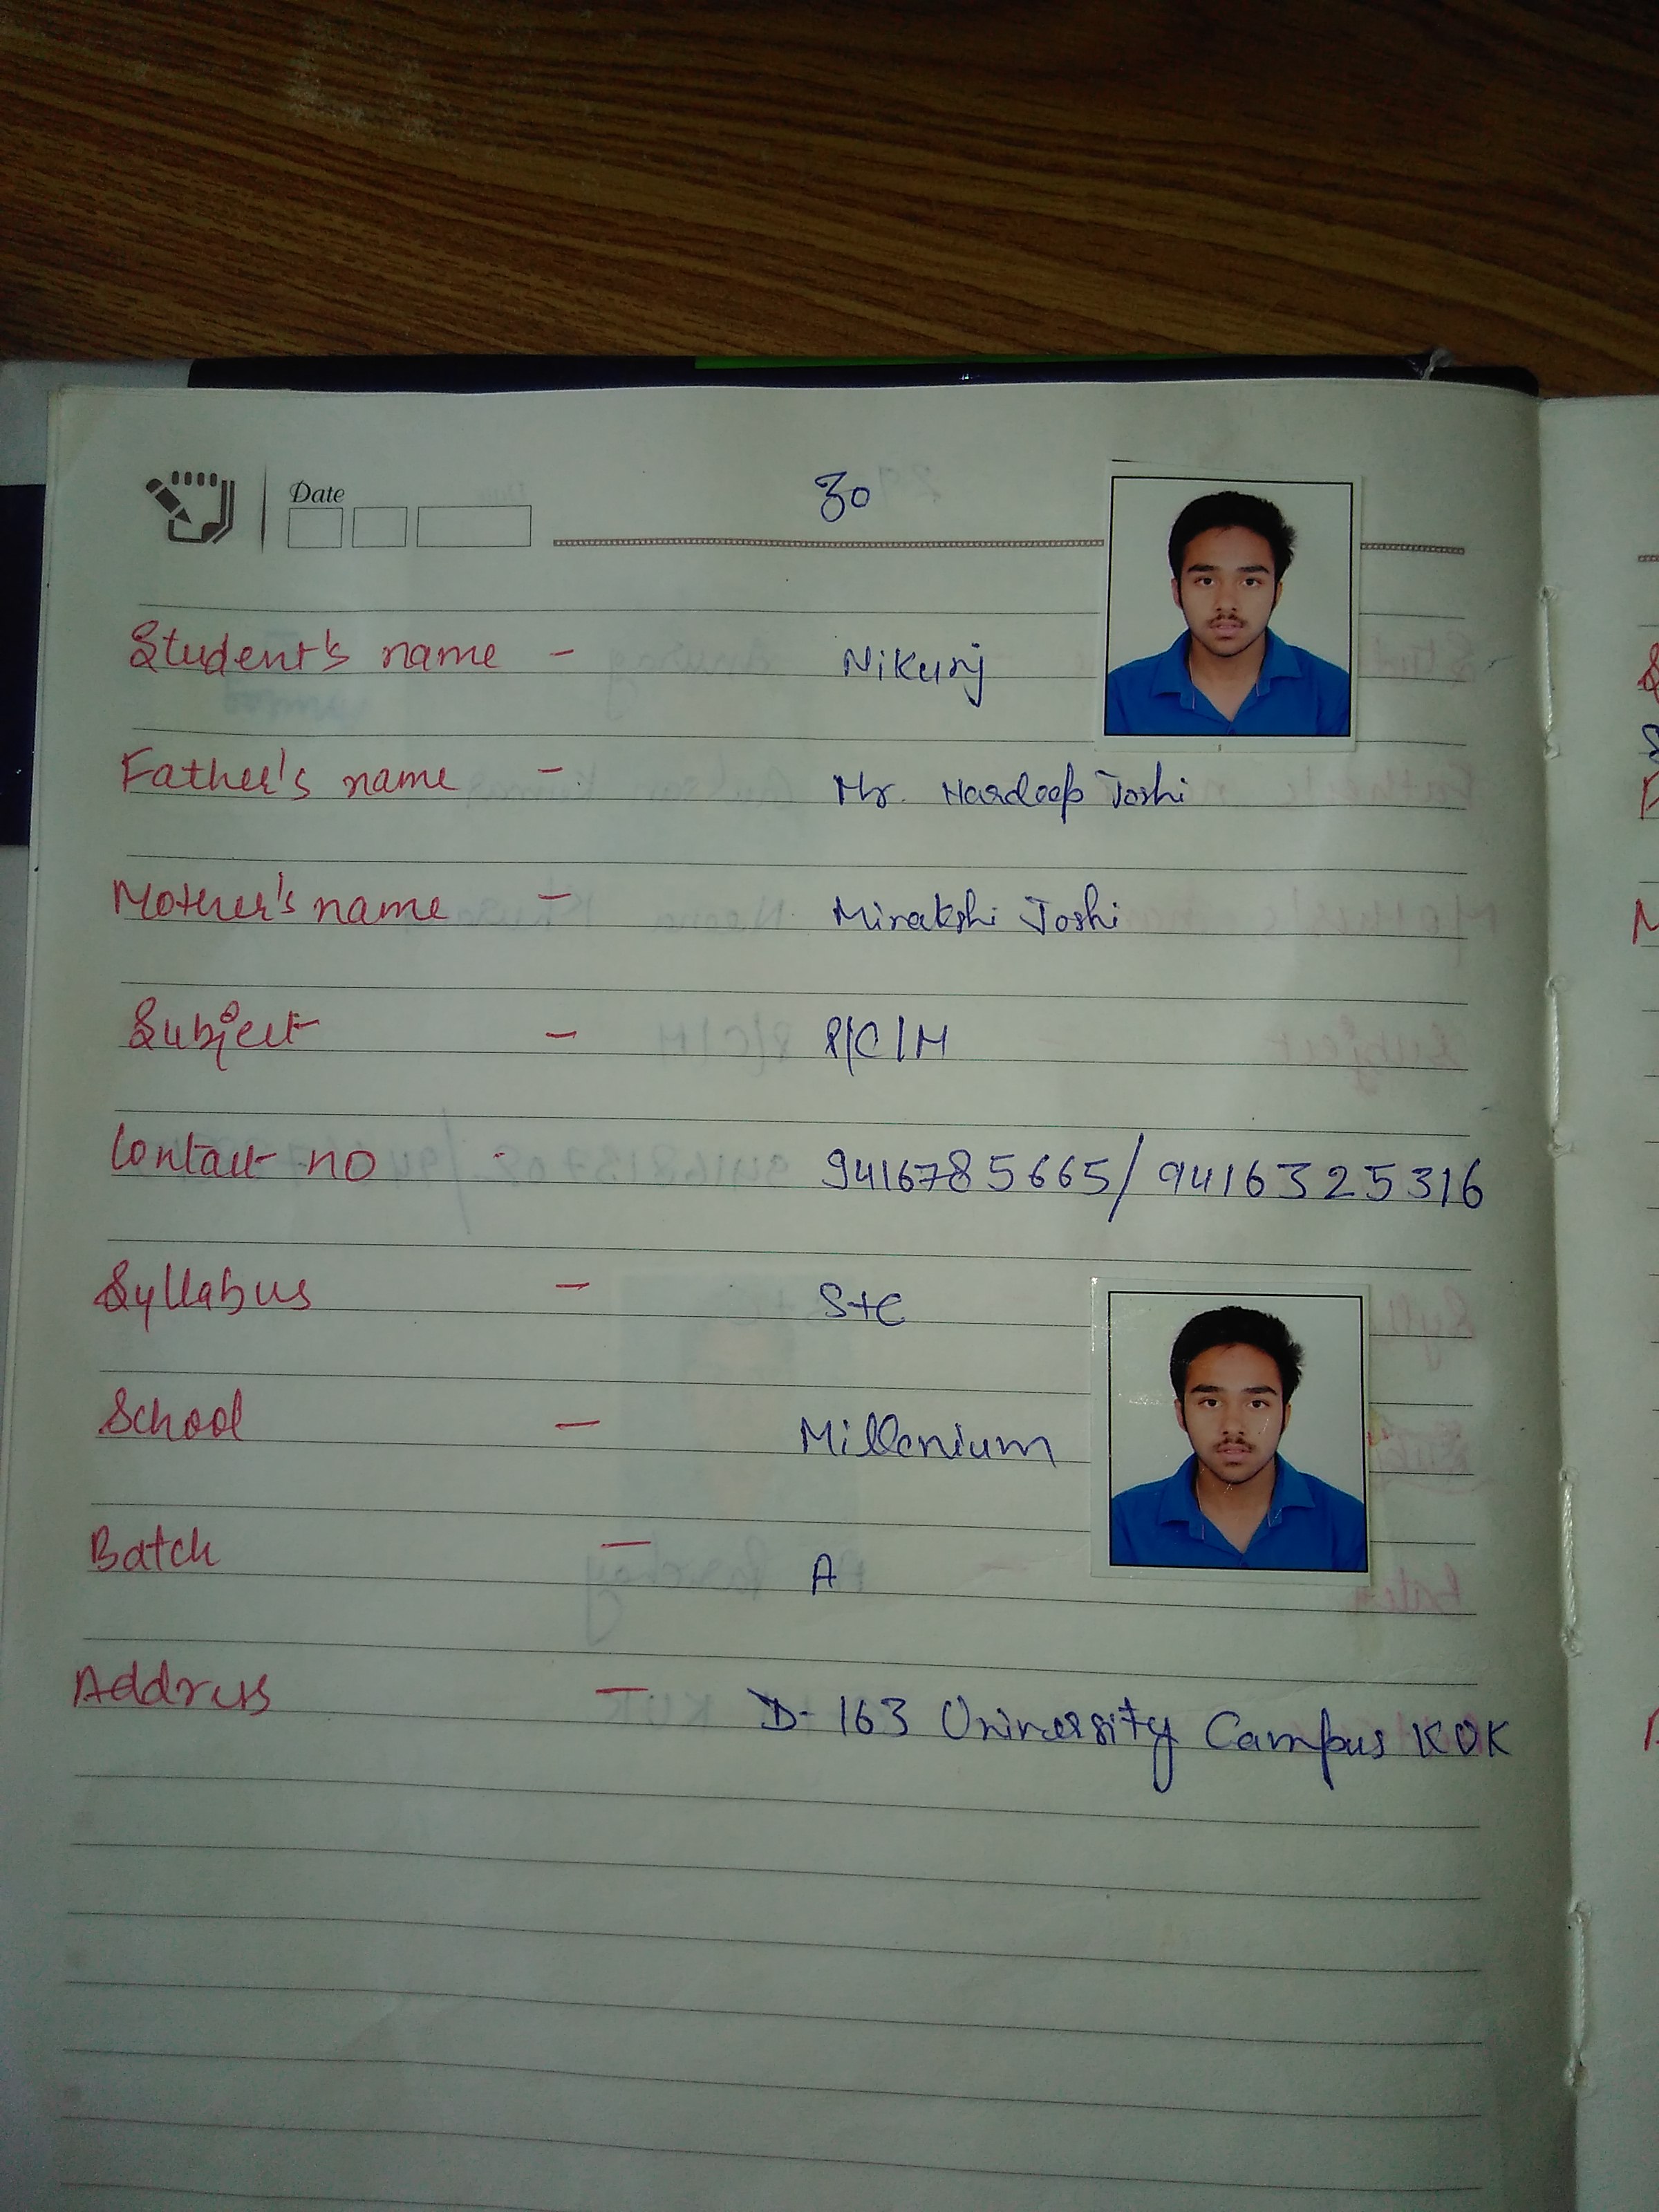 Date
30
Student's name - Nikunj
Father's name - Mr. Hardeep Joshi
Mother's name - Minakshi Joshi
Subject - P/C/M
Contact no - 9416785665/9416325316
Syllabus - S+C
School - Millenium
Batch - A
Address - D-163 University Campus KUK